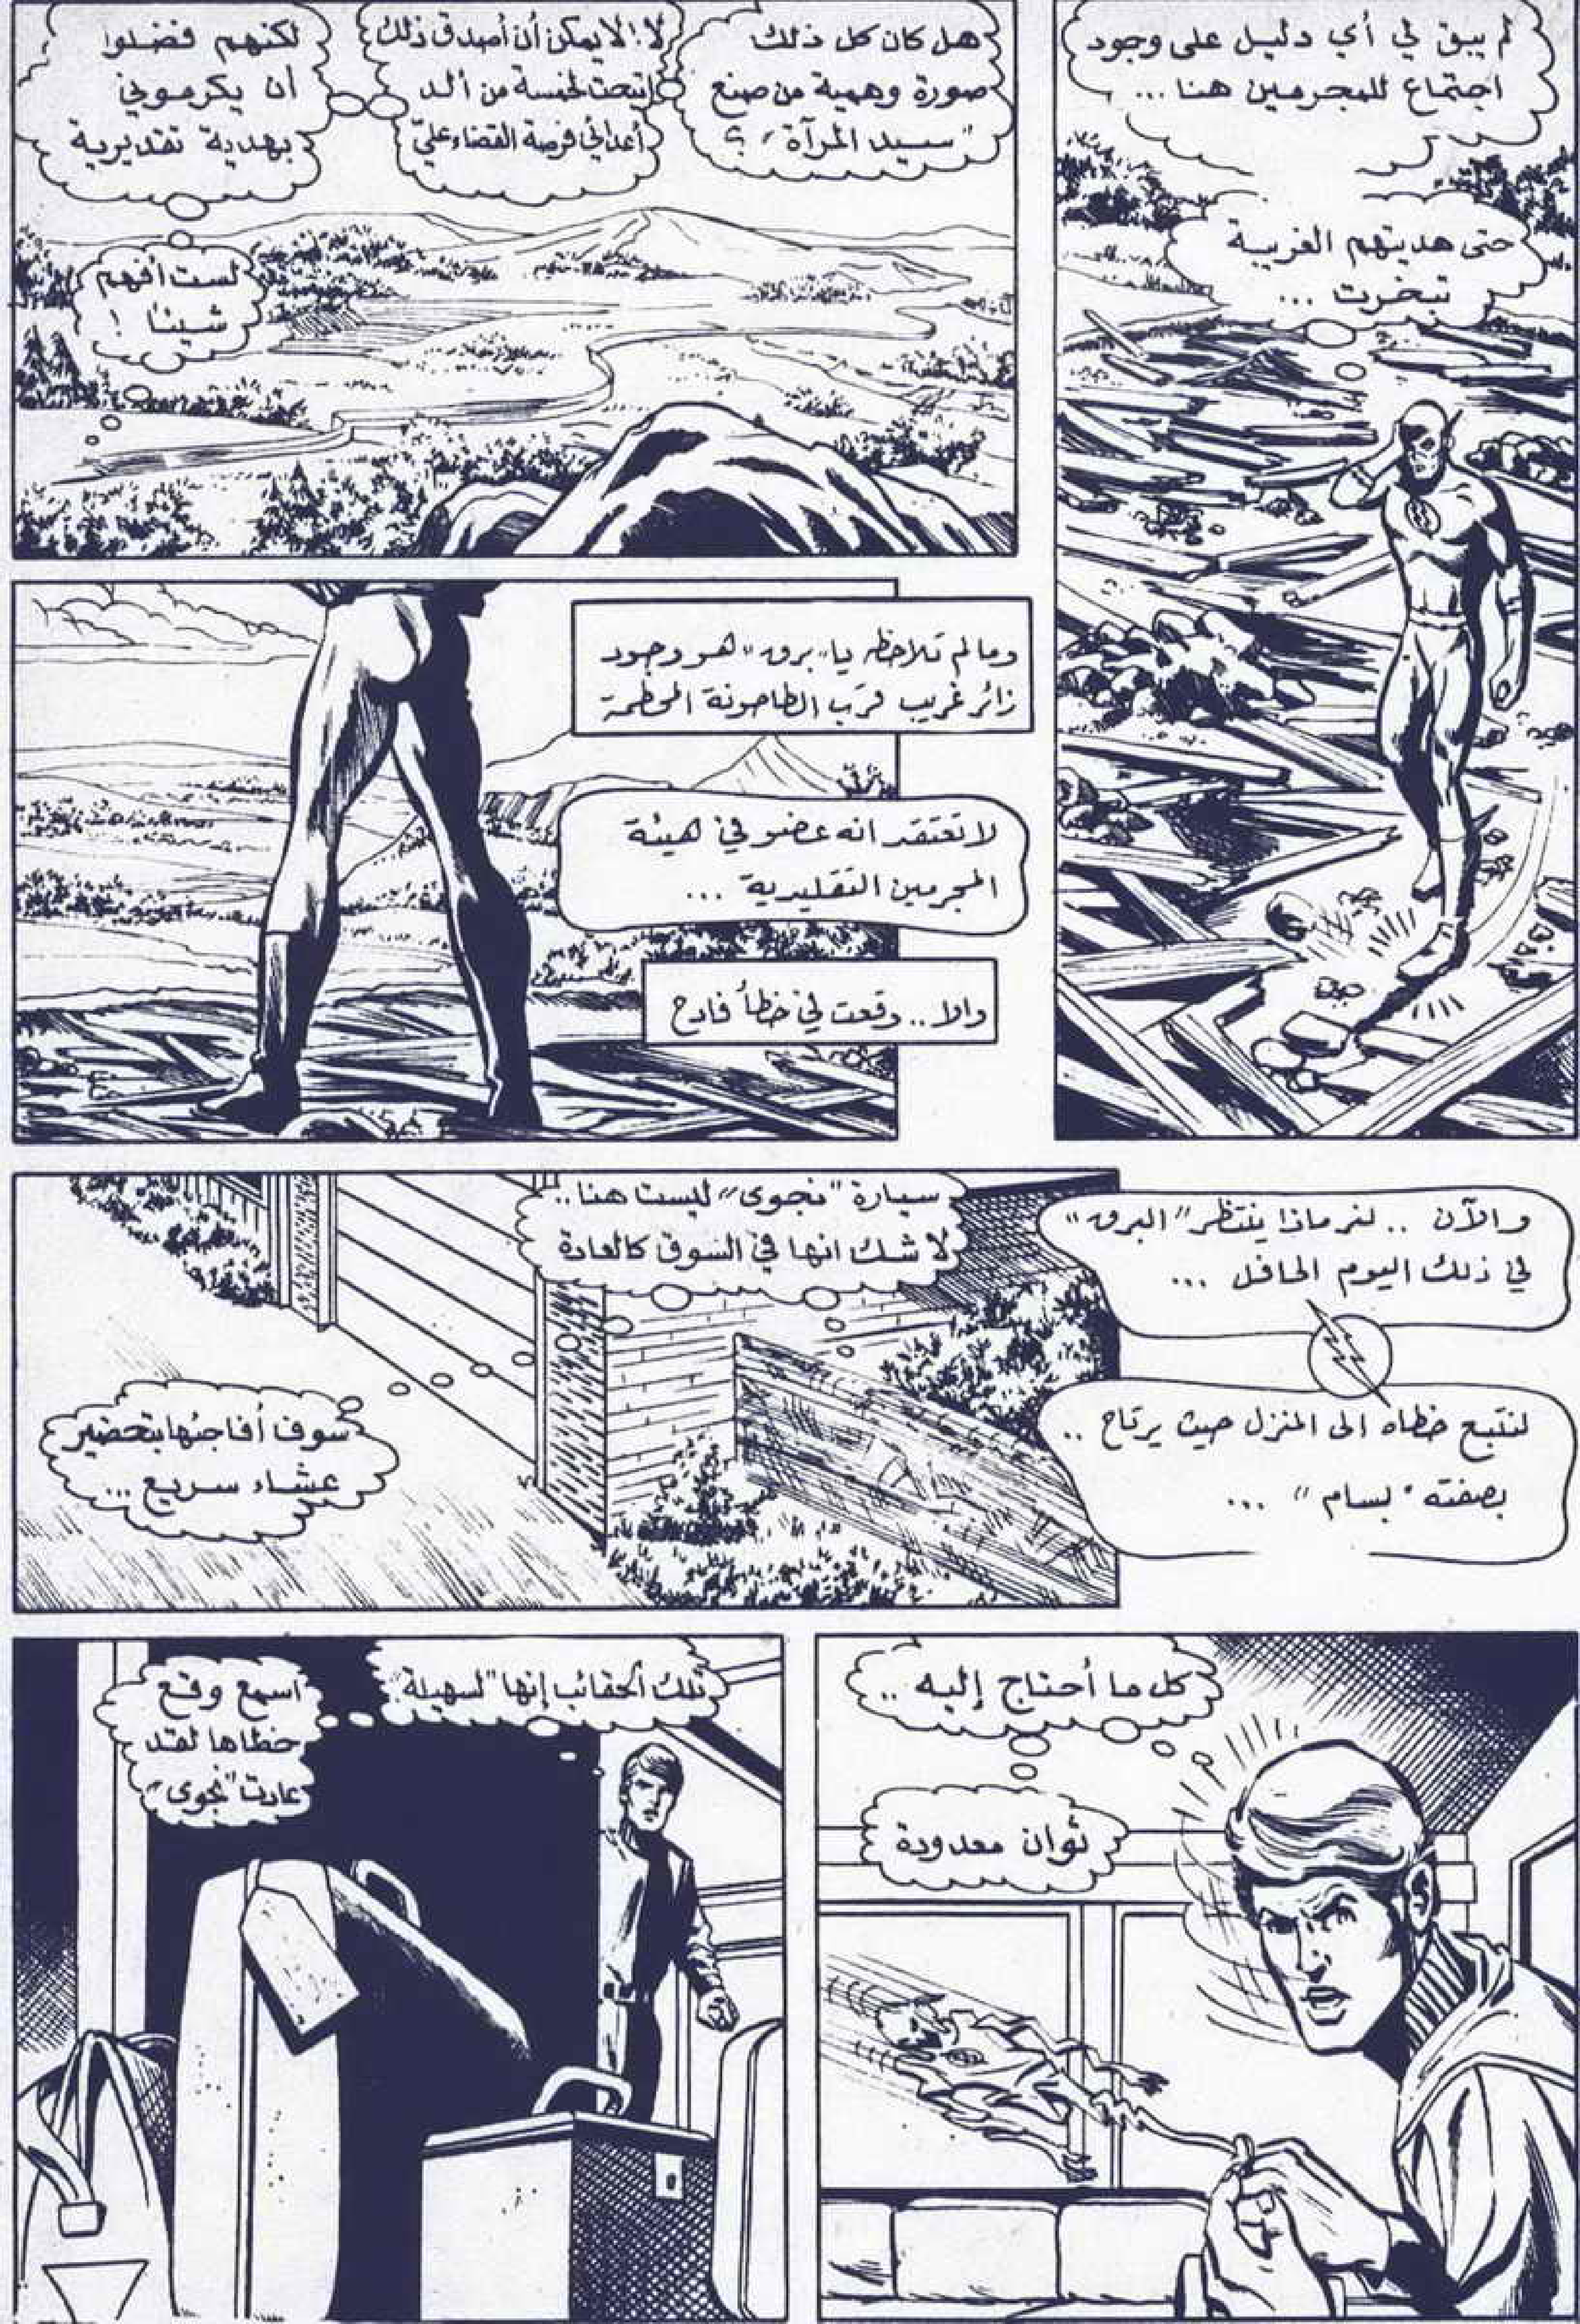 لم يبق لي أي دليل على وجود
اجتماع للمجرمين هنا ...
حتى هديتهم الغريبة
تبخرت ...
هل كان كل ذلك
صورة وهمية من صنع
"سيد المرآة" ؟
لا! لا يمكن أن أصدق ذلك
اتيحت لخمسة من ألد
أعدائي فرصة القضاء عليّ
لكنهم فضلوا
أن يكرموني
بهدية تقديرية
لست أفهم
شيئا !
وما لم تلاحظه يا "برق" هو وجود
زائر غريب قرب الطاحونة المحطمة
لا تعتقد انه عضو في هيئة
المجرمين التقليدية ...
والا .. وقعت في خطأ فادح
والآن .. لنر ماذا ينتظر "البرق"
في ذلك اليوم الحافل ...
لنتبع خطاه الى المنزل حيث يرتاح ..
بصفته "بسام" ...
سيارة "نجوى" ليست هنا ..
لا شك انها في السوق كالعادة
سوف أفاجئها بتحضير
عشاء سريع ...
كل ما أحتاج إليه ..
ثوان معدودة
تلك الحقائب إنها "لسهيلة"
اسمع وقع
خطاها لقد
عادت "نجوى"